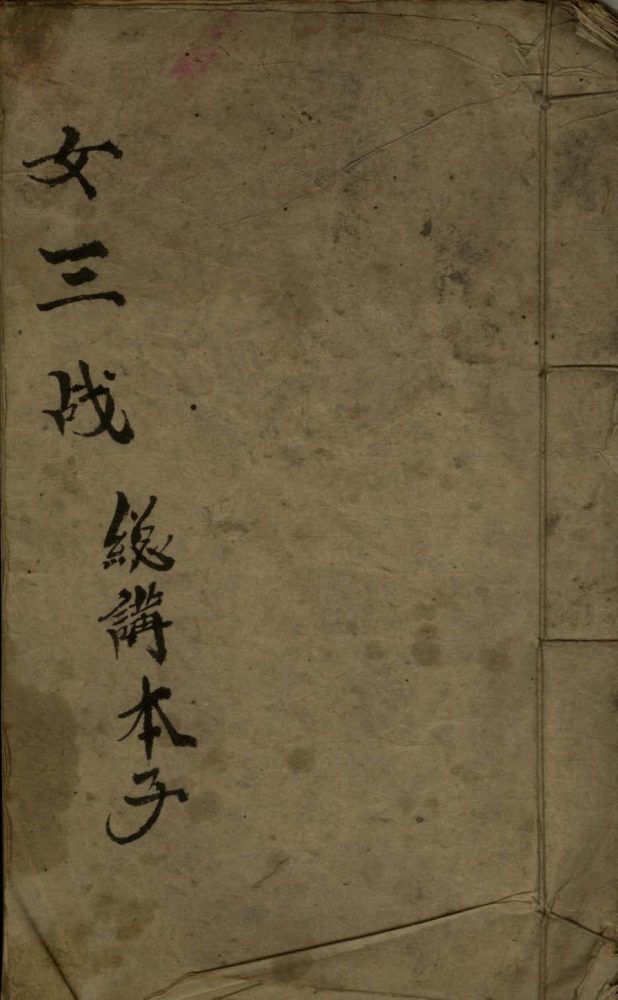 女三战
総講本子